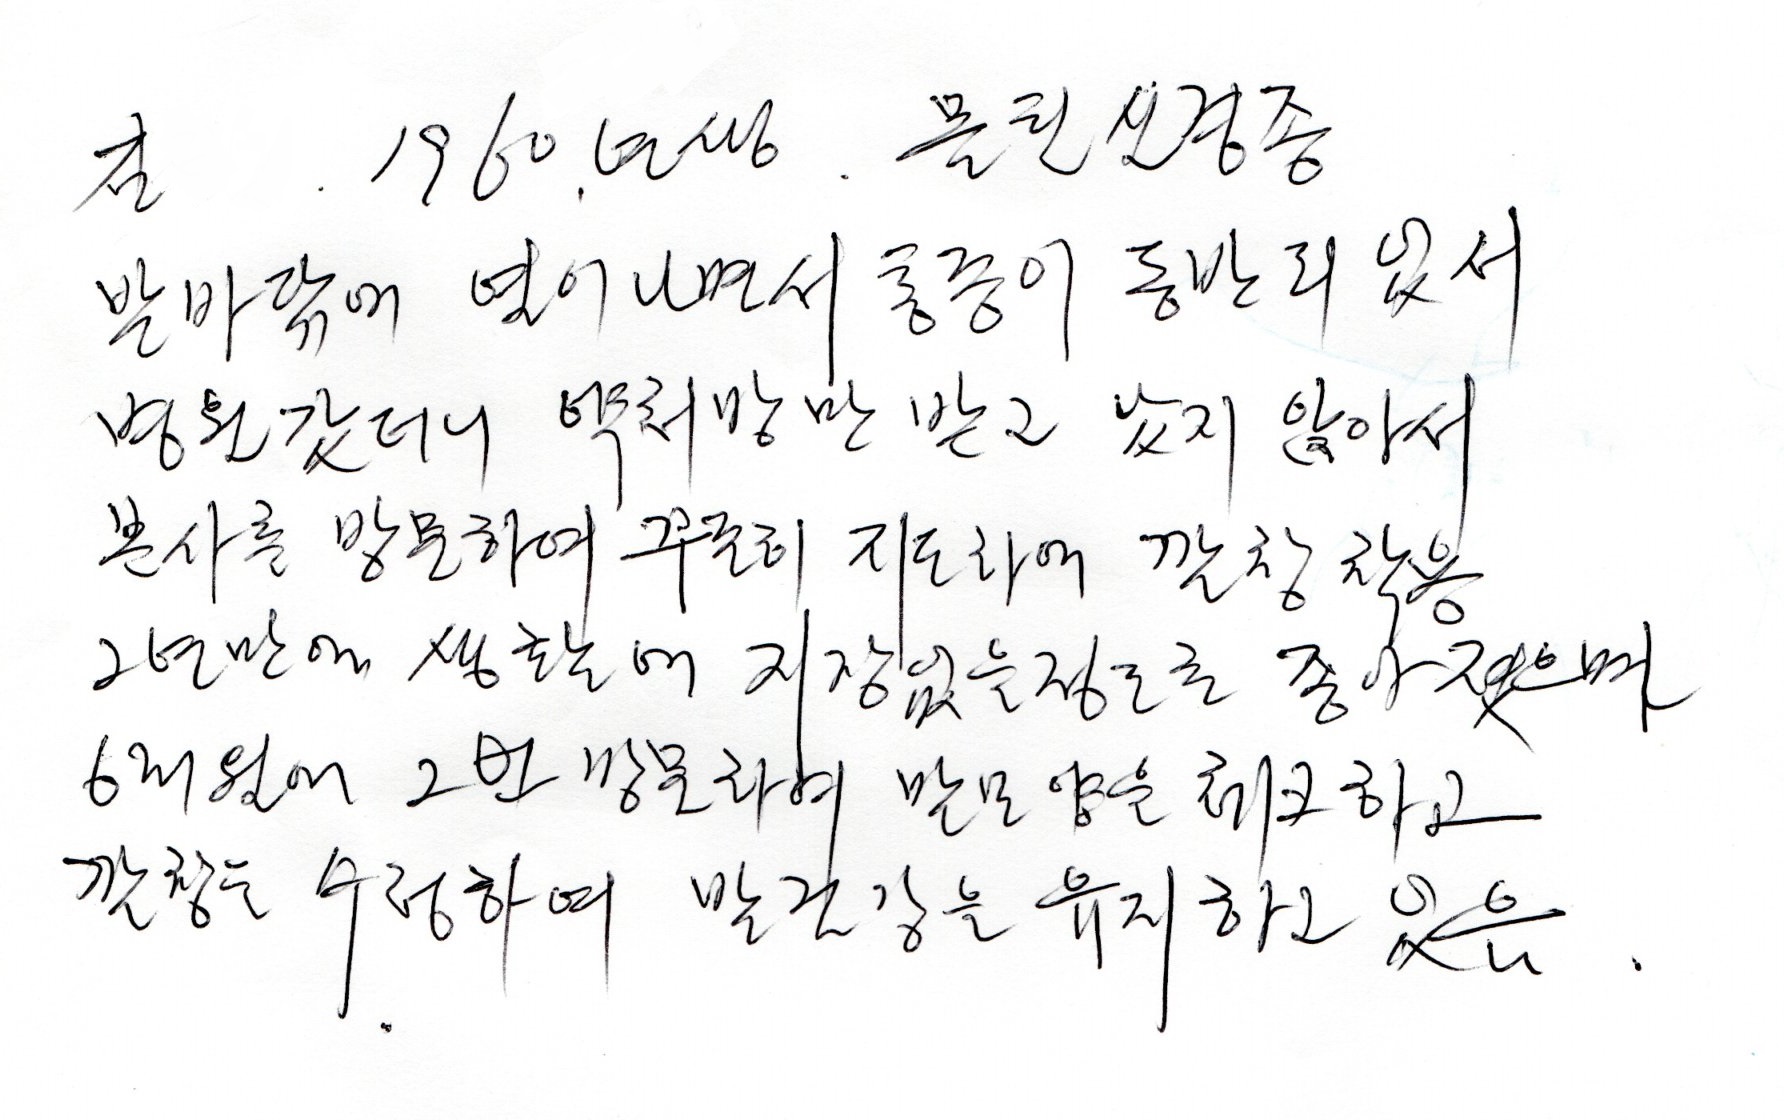 김 . 1960.년생 . 몰턴신경종
발바닦에 열이나면서 통증이 동반되 있서
병원갔더니 약처방만 받고 낫지 않아서
본사를 방문하여 꾸준히 지도하에 깔창 착용
2년만에 생활에 지장없을정도로 좋아졌으며
6개월에 2번 방문하여 발모양을 체크하고
깔창을 수정하여 발건강을 유지하고 있음.